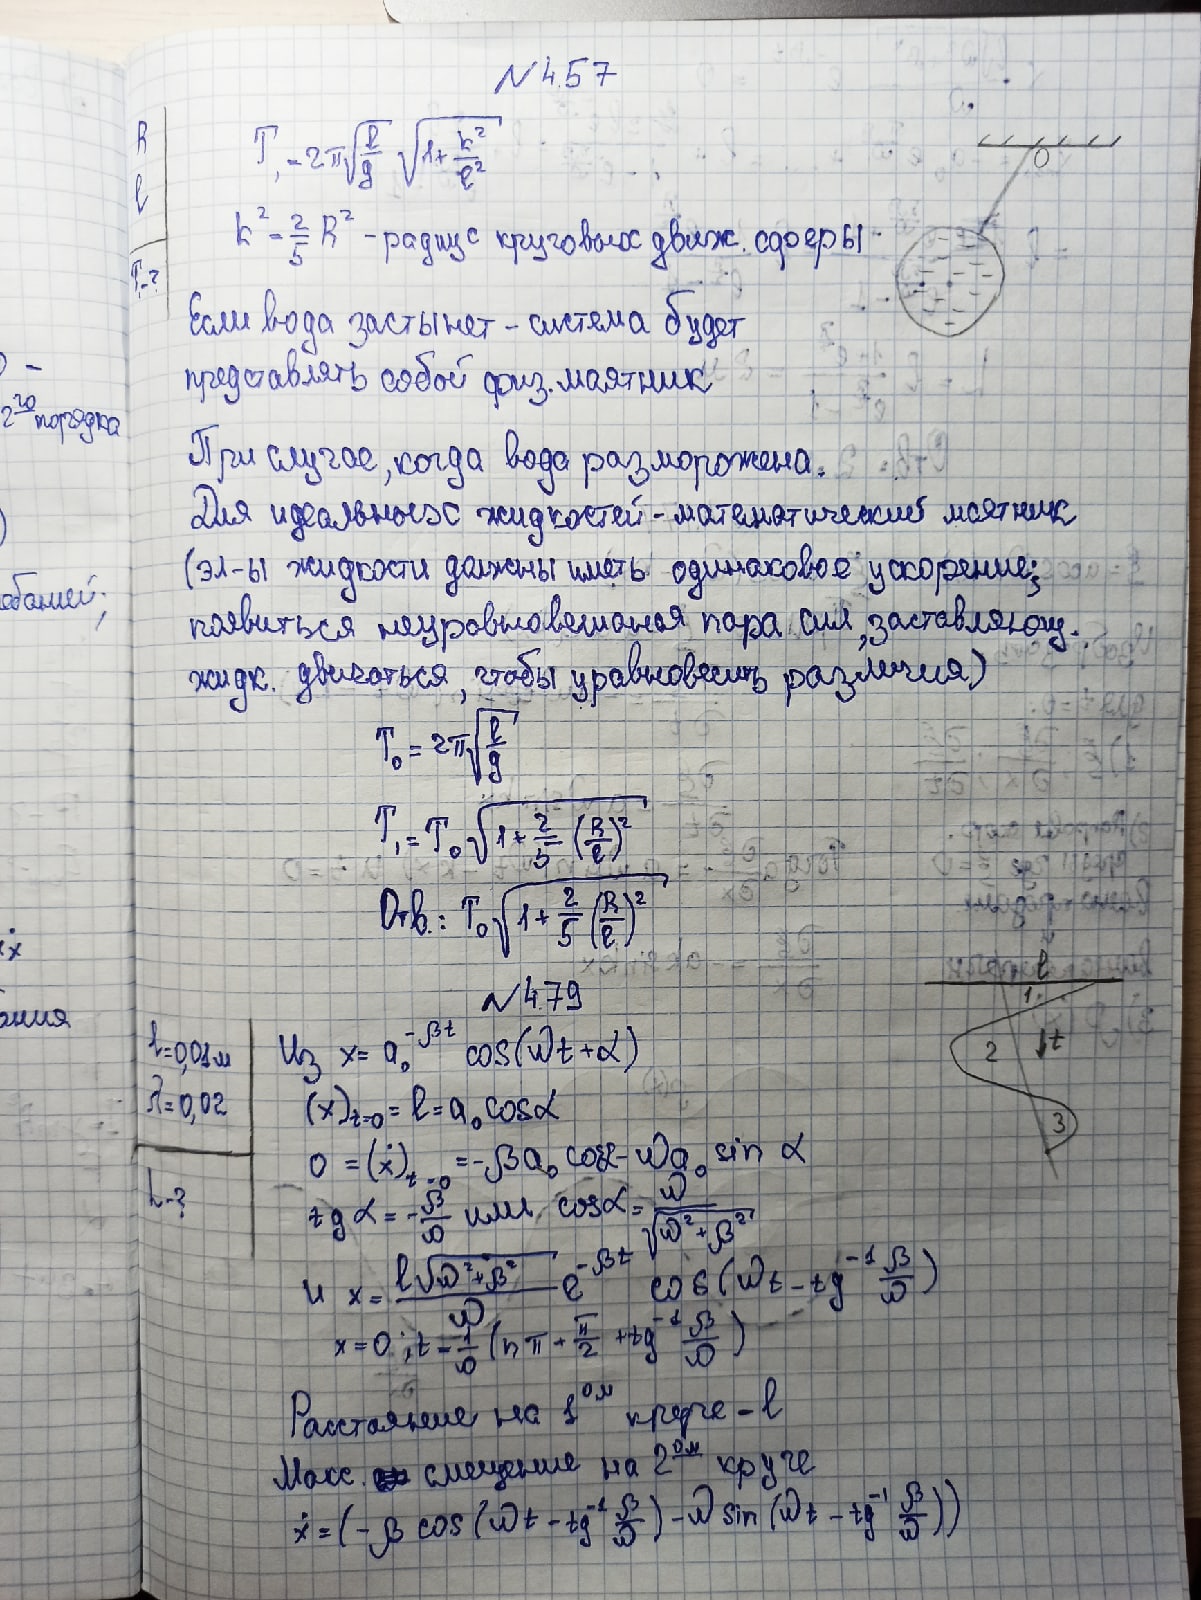 N 4.57
R
l
T₁-?
T₁ = 2π√(l/g) √(1+k²/l²)
k² = 2/5 R² - радиус круговых движ. сферы
O
Если вода застынет - система будет
представлять собой физ. маятник
При случае, когда вода разморожена.
Для идеальных жидкостей - математический маятник
(эл-ы жидкости должны иметь одинаковое ускорение;
появиться неуровновешаная пара сил, заставляющ.
жидк. двигаться, чтобы уравновесить различия)
T₀ = 2π√(l/g)
T₁ = T₀√(1+2/5 (R/l)²)
Отв.: T₀√(1+2/5 (R/l)²)
N 4.79
l=0,01м
λ=0,02
L-?
Из x= a₀^(-βt) cos(ωt+α)
(x)ₜ₌₀ = l = a₀ cosα
0 = (ẋ)ₜ₌₀ = -βa₀ cosα - ωa₀ sin α
tg α = -β/ω или cosα = ω/√(ω²+β²)
и x = l√(ω²+β²)/ω e^(-βt) cos(ωt - tg⁻¹ β/ω)
x=0; t = 1/ω (nπ + π/2 + tg⁻¹ β/ω)
Расстояние на 1ом круге - l
Макс. смещение на 2ом круге
ẋ = (-β cos(ωt - tg⁻¹ β/ω) - ω sin(ωt - tg⁻¹ β/ω))
l
1.
2
↓t
3
2го порядка
ебаний;
ания